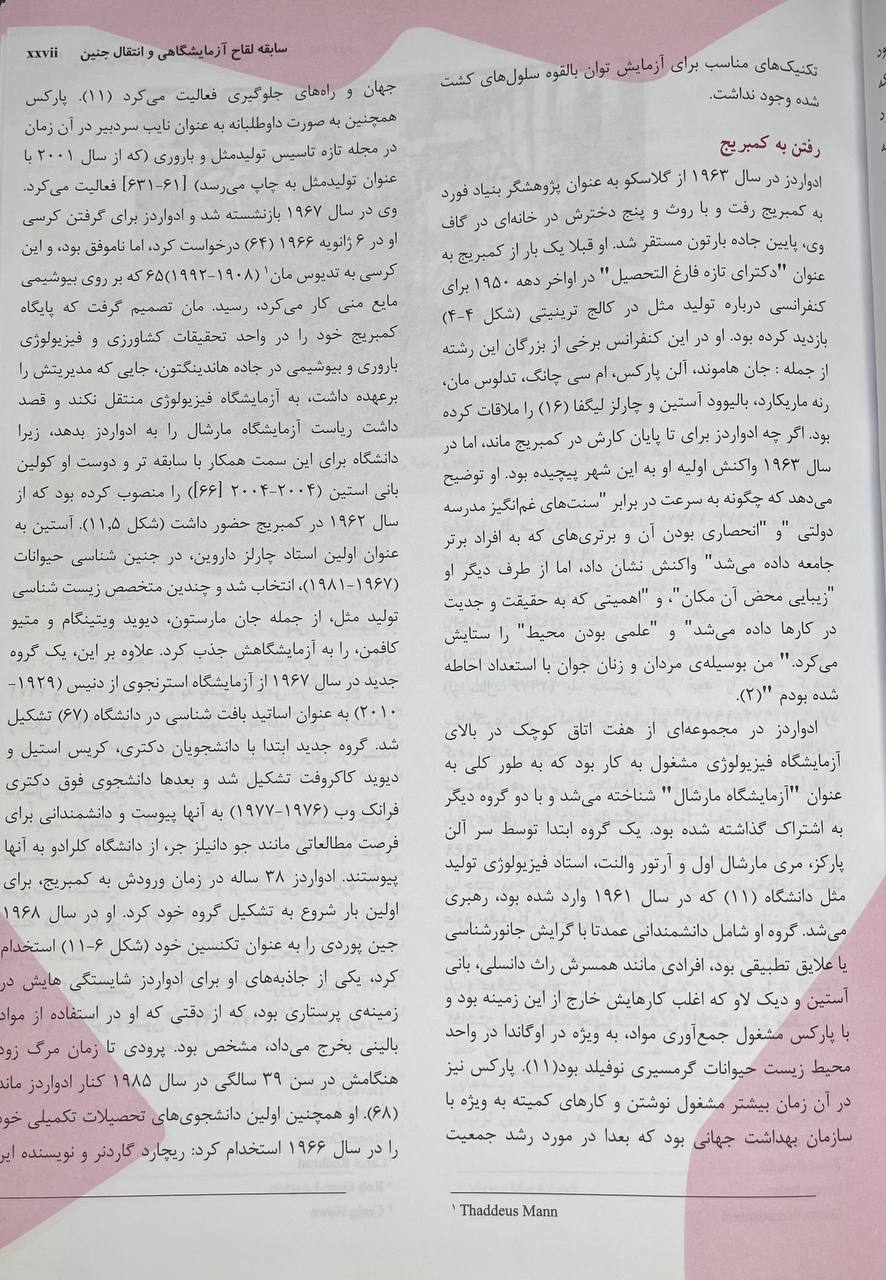 سابقه لقاح آزمایشگاهی و انتقال جنین xxvii
تکنیک‌های مناسب برای آزمایش توان بالقوه سلول‌های کشت
شده وجود نداشت.
رفتن به کمبریج
ادواردز در سال ۱۹۶۳ از گلاسکو به عنوان پژوهشگر بنیاد فورد
به کمبریج رفت و با روث و پنج دخترش در خانه‌ای در گاف
وی، پایین جاده بارتون مستقر شد. او قبلا یک بار از کمبریج به
عنوان "دکترای تازه فارغ التحصیل" در اواخر دهه ۱۹۵۰ برای
کنفرانسی درباره تولید مثل در کالج ترینیتی (شکل ۴-۴)
بازدید کرده بود. او در این کنفرانس برخی از بزرگان این رشته
از جمله : جان هاموند، آلن پارکس، ام سی چانگ، تدلوس مان،
رنه ماریکارد، بالیوود آستین و چارلز لیگفا (۱۶) را ملاقات کرده
بود. اگر چه ادواردز برای تا پایان کارش در کمبریج ماند، اما در
سال ۱۹۶۳ واکنش اولیه او به این شهر پیچیده بود. او توضیح
می‌دهد که چگونه به سرعت در برابر "سنت‌های غم‌انگیز مدرسه
دولتی "و "انحصاری بودن آن و برتری‌های که به افراد برتر
جامعه داده می‌شد" واکنش نشان داد، اما از طرف دیگر او
"زیبایی محض آن مکان"، و "اهمیتی که به حقیقت و جدیت
در کارها داده می‌شد" و "علمی بودن محیط" را ستایش
می‌کرد." من بوسیله‌ی مردان و زنان جوان با استعداد احاطه
شده بودم "(۲).
ادواردز در مجموعه‌ای از هفت اتاق کوچک در بالای
آزمایشگاه فیزیولوژی مشغول به کار بود که به طور کلی به
عنوان "آزمایشگاه مارشال" شناخته می‌شد و با دو گروه دیگر
به اشتراک گذاشته شده بود. یک گروه ابتدا توسط سر آلن
پارکز، مری مارشال اول و آرتور والنت، استاد فیزیولوژی تولید
مثل دانشگاه (۱۱) که در سال ۱۹۶۱ وارد شده بود، رهبری
می‌شد. گروه او شامل دانشمندانی عمدتا با گرایش جانورشناسی
یا علایق تطبیقی بود، افرادی مانند همسرش راث دانسلی، بانی
آستین و دیک لاو که اغلب کارهایش خارج از این زمینه بود و
با پارکس مشغول جمع‌آوری مواد، به ویژه در اوگاندا در واحد
محیط زیست حیوانات گرمسیری نوفیلد بود(۱۱). پارکس نیز
در آن زمان بیشتر مشغول نوشتن و کارهای کمیته به ویژه با
سازمان بهداشت جهانی بود که بعدا در مورد رشد جمعیت
¹ Thaddeus Mann
جهان و راه‌های جلوگیری فعالیت می‌کرد (۱۱). پارکس
همچنین به صورت داوطلبانه به عنوان نایب سردبیر در آن زمان
در مجله تازه تاسیس تولیدمثل و باروری (که از سال ۲۰۰۱ با
عنوان تولیدمثل به چاپ می‌رسد) [۶۱-۶۳۱] فعالیت می‌کرد.
وی در سال ۱۹۶۷ بازنشسته شد و ادواردز برای گرفتن کرسی
او در ۶ ژانویه ۱۹۶۶ (۶۴) درخواست کرد، اما ناموفق بود، و این
کرسی به تدیوس مان۱ (۱۹۰۸-۱۹۹۲)۶۵ که بر روی بیوشیمی
مایع منی کار می‌کرد، رسید. مان تصمیم گرفت که پایگاه
کمبریج خود را در واحد تحقیقات کشاورزی و فیزیولوژی
باروری و بیوشیمی در جاده هاندینگتون، جایی که مدیریتش را
برعهده داشت، به آزمایشگاه فیزیولوژی منتقل نکند و قصد
داشت ریاست آزمایشگاه مارشال را به ادواردز بدهد، زیرا
دانشگاه برای این سمت همکار با سابقه تر و دوست او کولین
بانی استین (۲۰۰۴-۲۰۰۴ [۶۶]) را منصوب کرده بود که از
سال ۱۹۶۲ در کمبریج حضور داشت (شکل ۱۱,۵). آستین به
عنوان اولین استاد چارلز داروین، در جنین شناسی حیوانات
(۱۹۶۷-۱۹۸۱)، انتخاب شد و چندین متخصص زیست شناسی
تولید مثل، از جمله جان مارستون، دیوید ویتینگام و متیو
کافمن، را به آزمایشگاهش جذب کرد. علاوه بر این، یک گروه
جدید در سال ۱۹۶۷ از آزمایشگاه استرنجوی از دنیس (۱۹۲۹-
۲۰۱۰) به عنوان اساتید بافت شناسی در دانشگاه (۶۷) تشکیل
شد. گروه جدید ابتدا با دانشجویان دکتری، کریس استیل و
دیوید کاکروفت تشکیل شد و بعدها دانشجوی فوق دکتری
فرانک وب (۱۹۷۶-۱۹۷۷) به آنها پیوست و دانشمندانی برای
فرصت مطالعاتی مانند جو دانیلز جر، از دانشگاه کلرادو به آنها
پیوستند. ادواردز ۳۸ ساله در زمان ورودش به کمبریج، برای
اولین بار شروع به تشکیل گروه خود کرد. او در سال ۱۹۶۸
جین پوردی را به عنوان تکنسین خود (شکل ۶-۱۱) استخدام
کرد، یکی از جاذبه‌های او برای ادواردز شایستگی هایش در
زمینه‌ی پرستاری بود، که از دقتی که او در استفاده از مواد
بالینی بخرج می‌داد، مشخص بود. پرودی تا زمان مرگ زود
هنگامش در سن ۳۹ سالگی در سال ۱۹۸۵ کنار ادواردز ماند
(۶۸). او همچنین اولین دانشجوی‌های تحصیلات تکمیلی خود
را در سال ۱۹۶۶ استخدام کرد: ریچارد گاردنر و نویسنده این